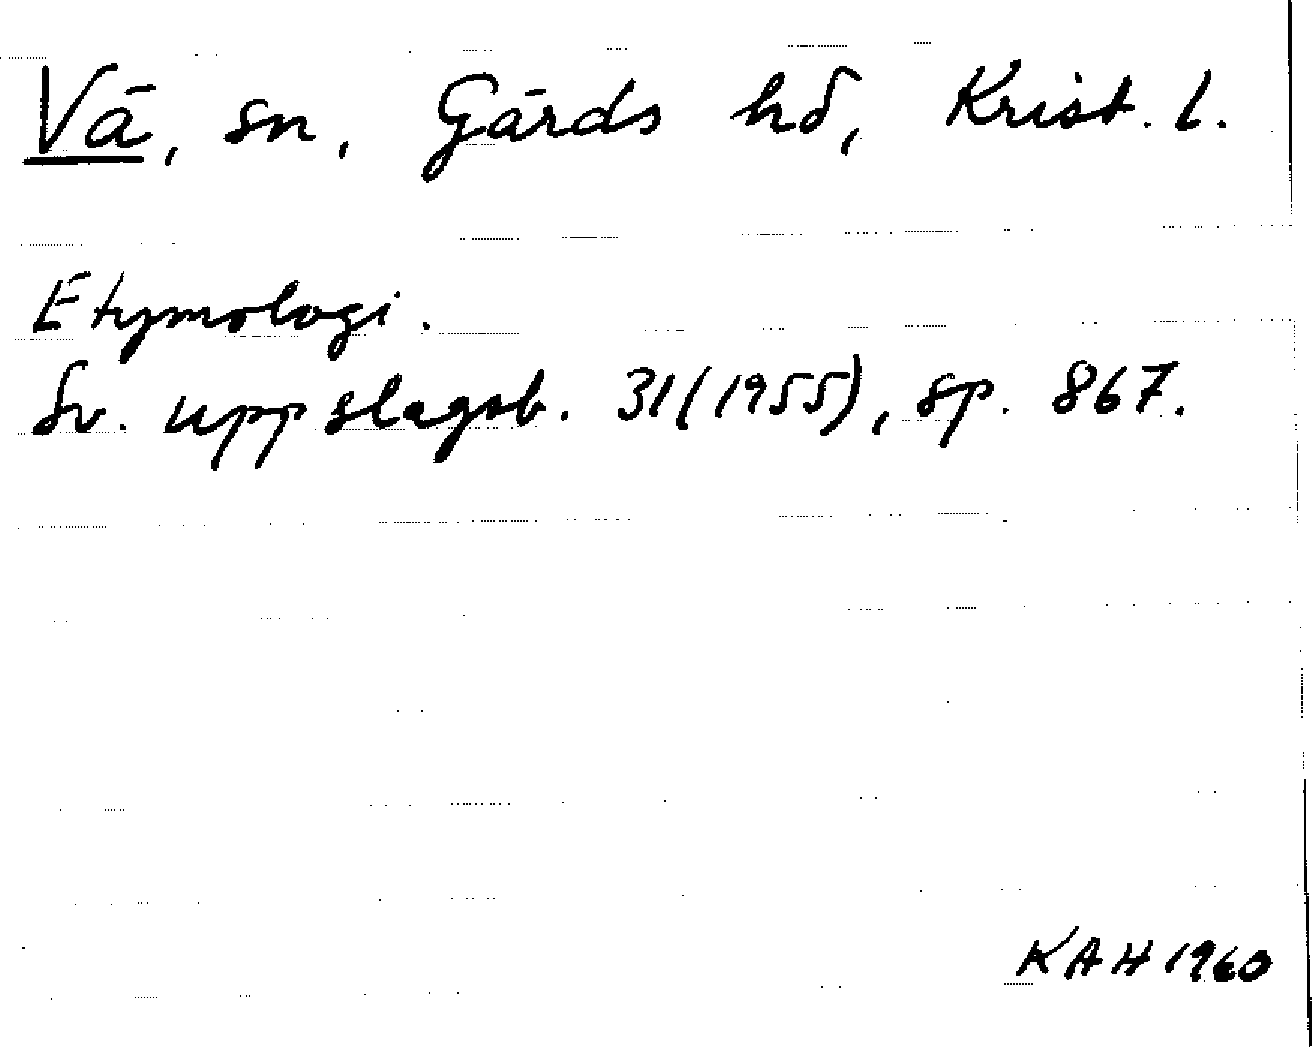 Vä, sn, Gärds hd, Krist. l.
Etymologi.
Sv. uppslagsb. 31(1955), sp. 867.
KAH 1960